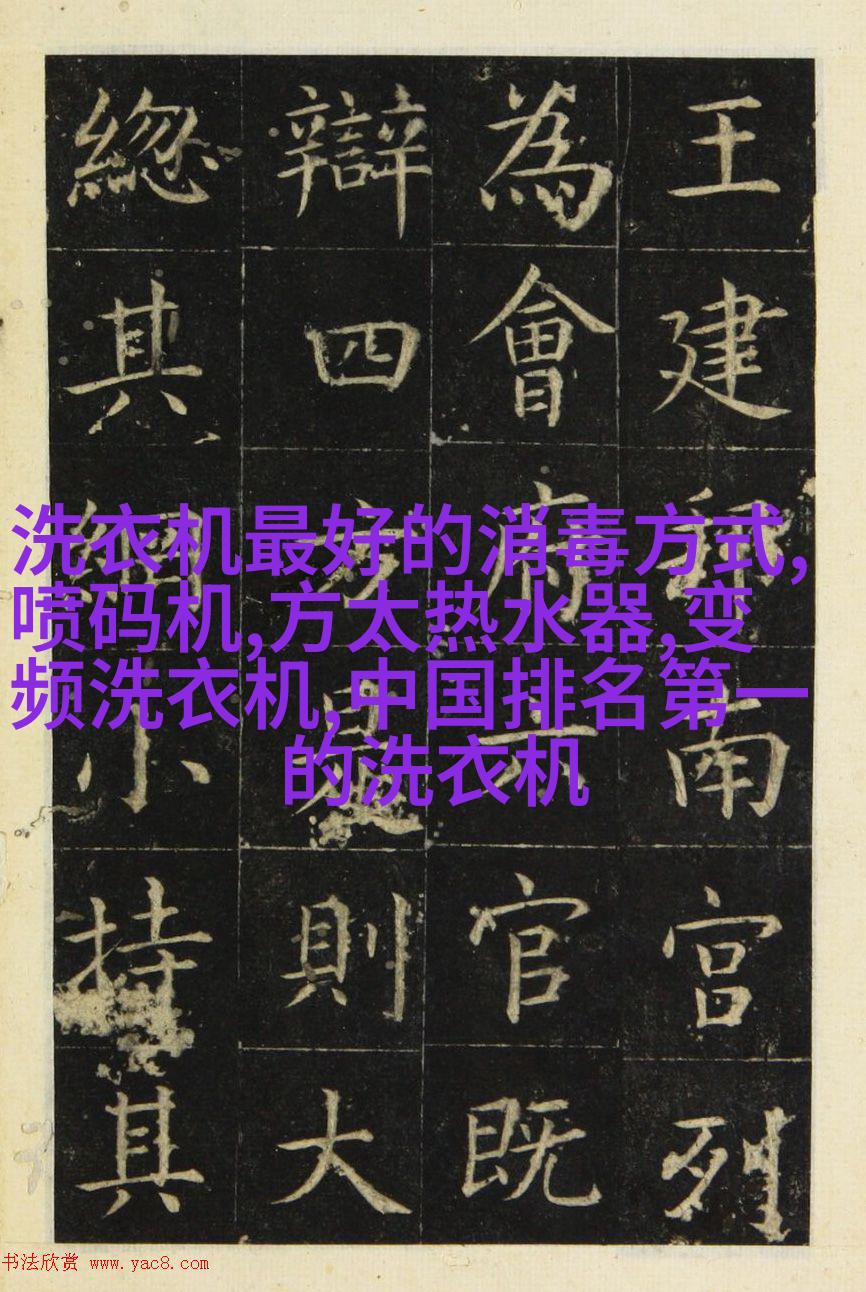 王建南宮列
為會府官既
辯四是則大
緫其小持其
洗衣机最好的消毒方式,
喷码机,方太热水器,变
频洗衣机,中国排名第一
的洗衣机
书法欣赏 www.yac8.com